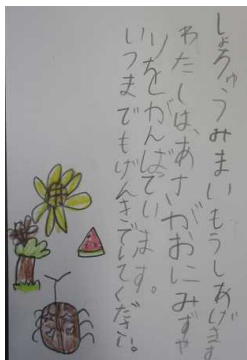 しょちゅうみまいもうしあげます
わたしは、あさがおにみずや
りをがんばています。
いつまでもげんきでいてください。